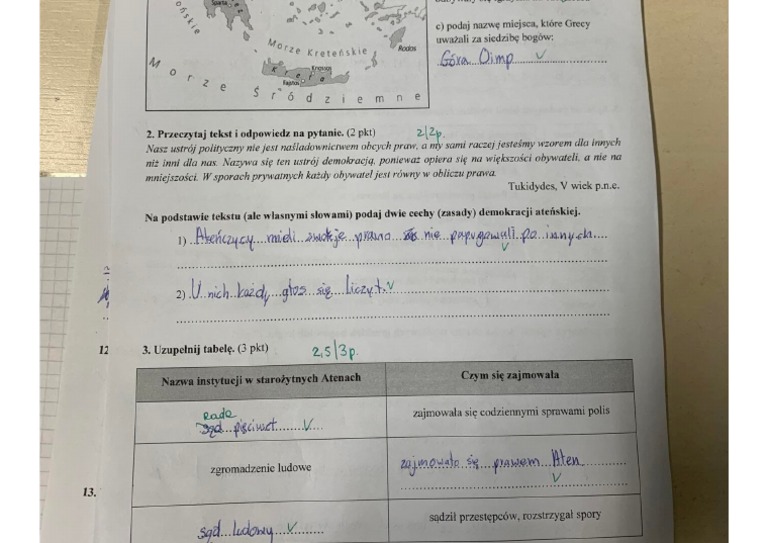 Sparta
ońskie
Morze Kreteńskie
Rodos
Knossos
Kreta
Fajstos
Morze Śródziemne
c) podaj nazwę miejsca, które Grecy
uważali za siedzibę bogów:
Góra Olimp V
2. Przeczytaj tekst i odpowiedz na pytanie. (2 pkt) 2/2p.
Nasz ustrój polityczny nie jest naśladownictwem obcych praw, a my sami raczej jesteśmy wzorem dla innych
niż inni dla nas. Nazywa się ten ustrój demokracją, ponieważ opiera się na większości obywateli, a nie na
mniejszości. W sporach prywatnych każdy obywatel jest równy w obliczu prawa.
Tukidydes, V wiek p.n.e.
Na podstawie tekstu (ale własnymi słowami) podaj dwie cechy (zasady) demokracji ateńskiej.
1) Ateńczycy mieli swoje prawo nie papugowali po innych V
2) U nich każdy głos się liczył. V
12
3. Uzupełnij tabelę. (3 pkt) 2,5/3p.
Nazwa instytucji w starożytnych Atenach
Czym się zajmowała
Rada
sąd pięciuset V
zajmowała się codziennymi sprawami polis
zgromadzenie ludowe
zajmowało się prawem Aten V
13.
sąd ludowy V
sądził przestępców, rozstrzygał spory